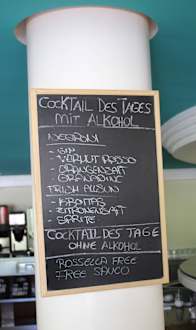 COCKTAIL DES TAGES
MIT ALKOHOL
NEGRONI
- GIN
- VERMUT ROSSO
- ORANGENSAFT
- GRANADINE
FRISH ALISUN
- ZITRONENSAFT
- SPRITE
COCKTAIL DES TAGE
OHNE ALKOHOL
ROSSELLA FREE
FREE SAUCO